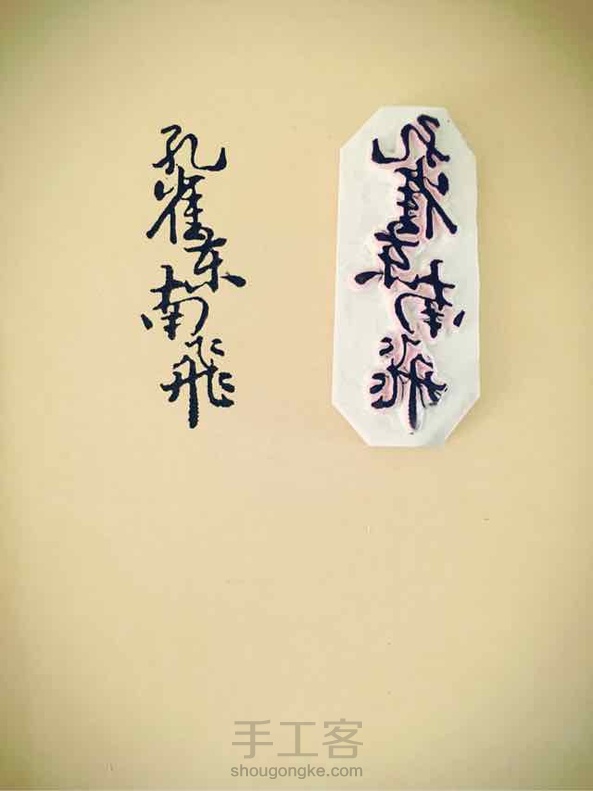 孔雀东南飛
孔雀东南飛
手工客
shougongke.com